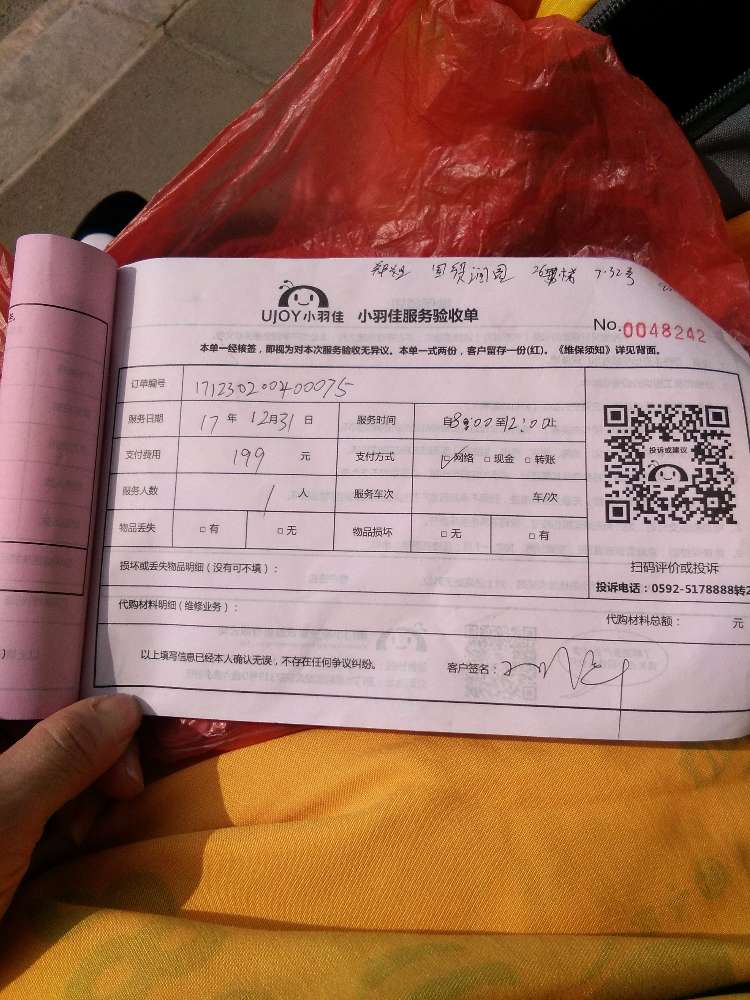 国贸润园
UJOY小羽佳 小羽佳服务验收单
No.0048242
本单一经核签，即视为对本次服务验收无异议。本单一式两份，客户留存一份(红)。《维保须知》详见背面。
订单编号 171230200400075
服务日期 17年 12月31日 服务时间 自8:00至12:00止
支付费用 199 元 支付方式 □网络 □现金 □转账
服务人数 1 人 服务车次 车/次
物品丢失 □有 □无 物品损坏 □无 □有
投诉或建议
扫码评价或投诉
投诉电话：0592-5178888转2
损坏或丢失物品明细（没有可不填）：
代购材料明细（维修业务）：
代购材料总额： 元
以上填写信息已经本人确认无误，不存在任何争议纠纷。 客户签名：